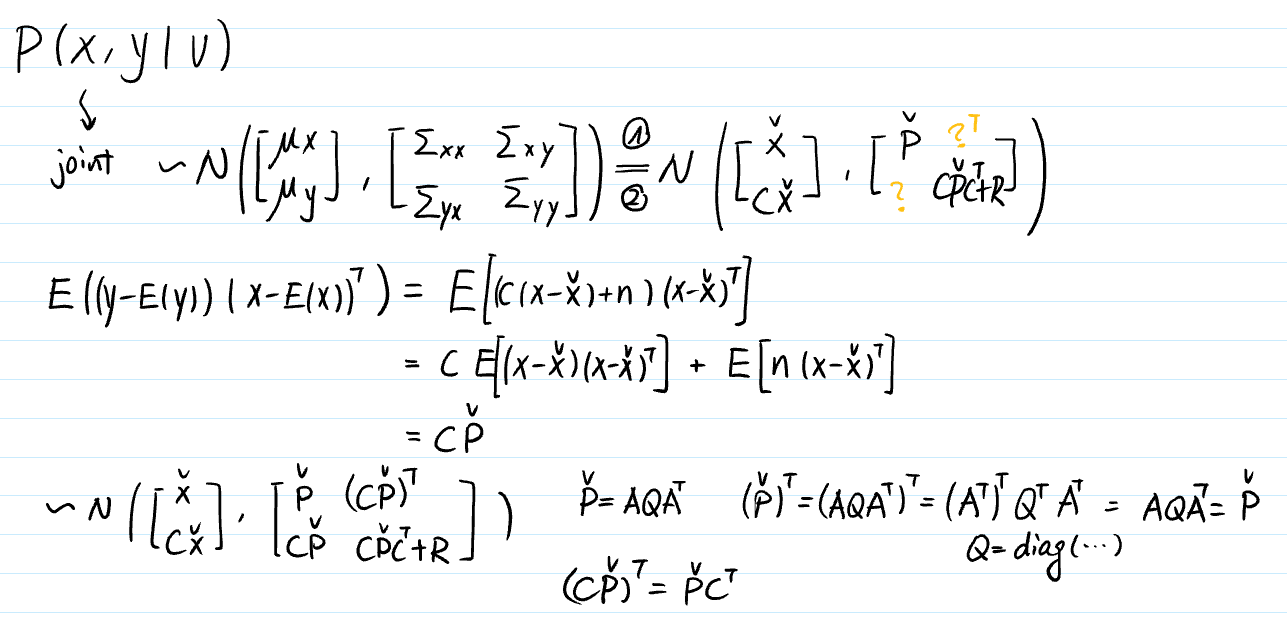 P(x, y | v)
↓
joint ~ N([μx; μy], [Σxx Σxy; Σyx Σyy]) ①=② N([x̌; Cx̌], [P̌ ?ᵀ; ? CP̌Cᵀ+R])
E((y-E(y)) (x-E(x))ᵀ) = E[(C(x-x̌)+n)(x-x̌)ᵀ]
= C E[(x-x̌)(x-x̌)ᵀ] + E[n(x-x̌)ᵀ]
= CP̌
~ N([x̌; Cx̌], [P̌ (CP̌)ᵀ; CP̌ CP̌Cᵀ+R]) P̌ = AQAᵀ (P̌)ᵀ = (AQAᵀ)ᵀ = (Aᵀ)ᵀ Qᵀ Aᵀ = AQAᵀ = P̌
Q = diag(⋯)
(CP̌)ᵀ = P̌Cᵀ